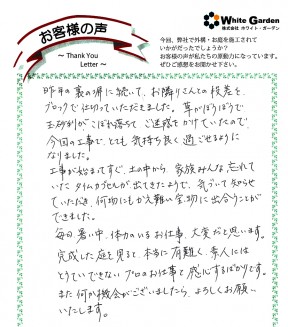 お客様の声
～ Thank You
Letter ～
White Garden
株式会社 ホワイト・ガーデン
今回、弊社で外構・お庭を施工されて
いかがだったでしょうか？
お客様の声が私たちの原動力になっています。
ぜひご感想をお聞かせ下さい。
昨年の裏の塀に続いて、お隣りさんとの段差を
ブロックで仕切っていただきました。草がぼうぼうで
玉砂利がこぼれ落ちてご迷惑をかけていたので、
今回の工事で、とても気持ち良く過ごせるように
なりました。
工事が始まってすぐ、土の中から、家族みんな忘れて
いたタイムカプセルが出てきたようで、気づいて知らせ
ていただき、何物にもかえ難い宝物に出会うことが
できました。
毎日、暑い中、体力のいるお仕事、大変だと思います。
完成した庭を見ると、本当に有難く、素人には
とうていできない プロのお仕事と感心するばかりです。
また何か機会がございましたら、よろしくお願い
いたします。